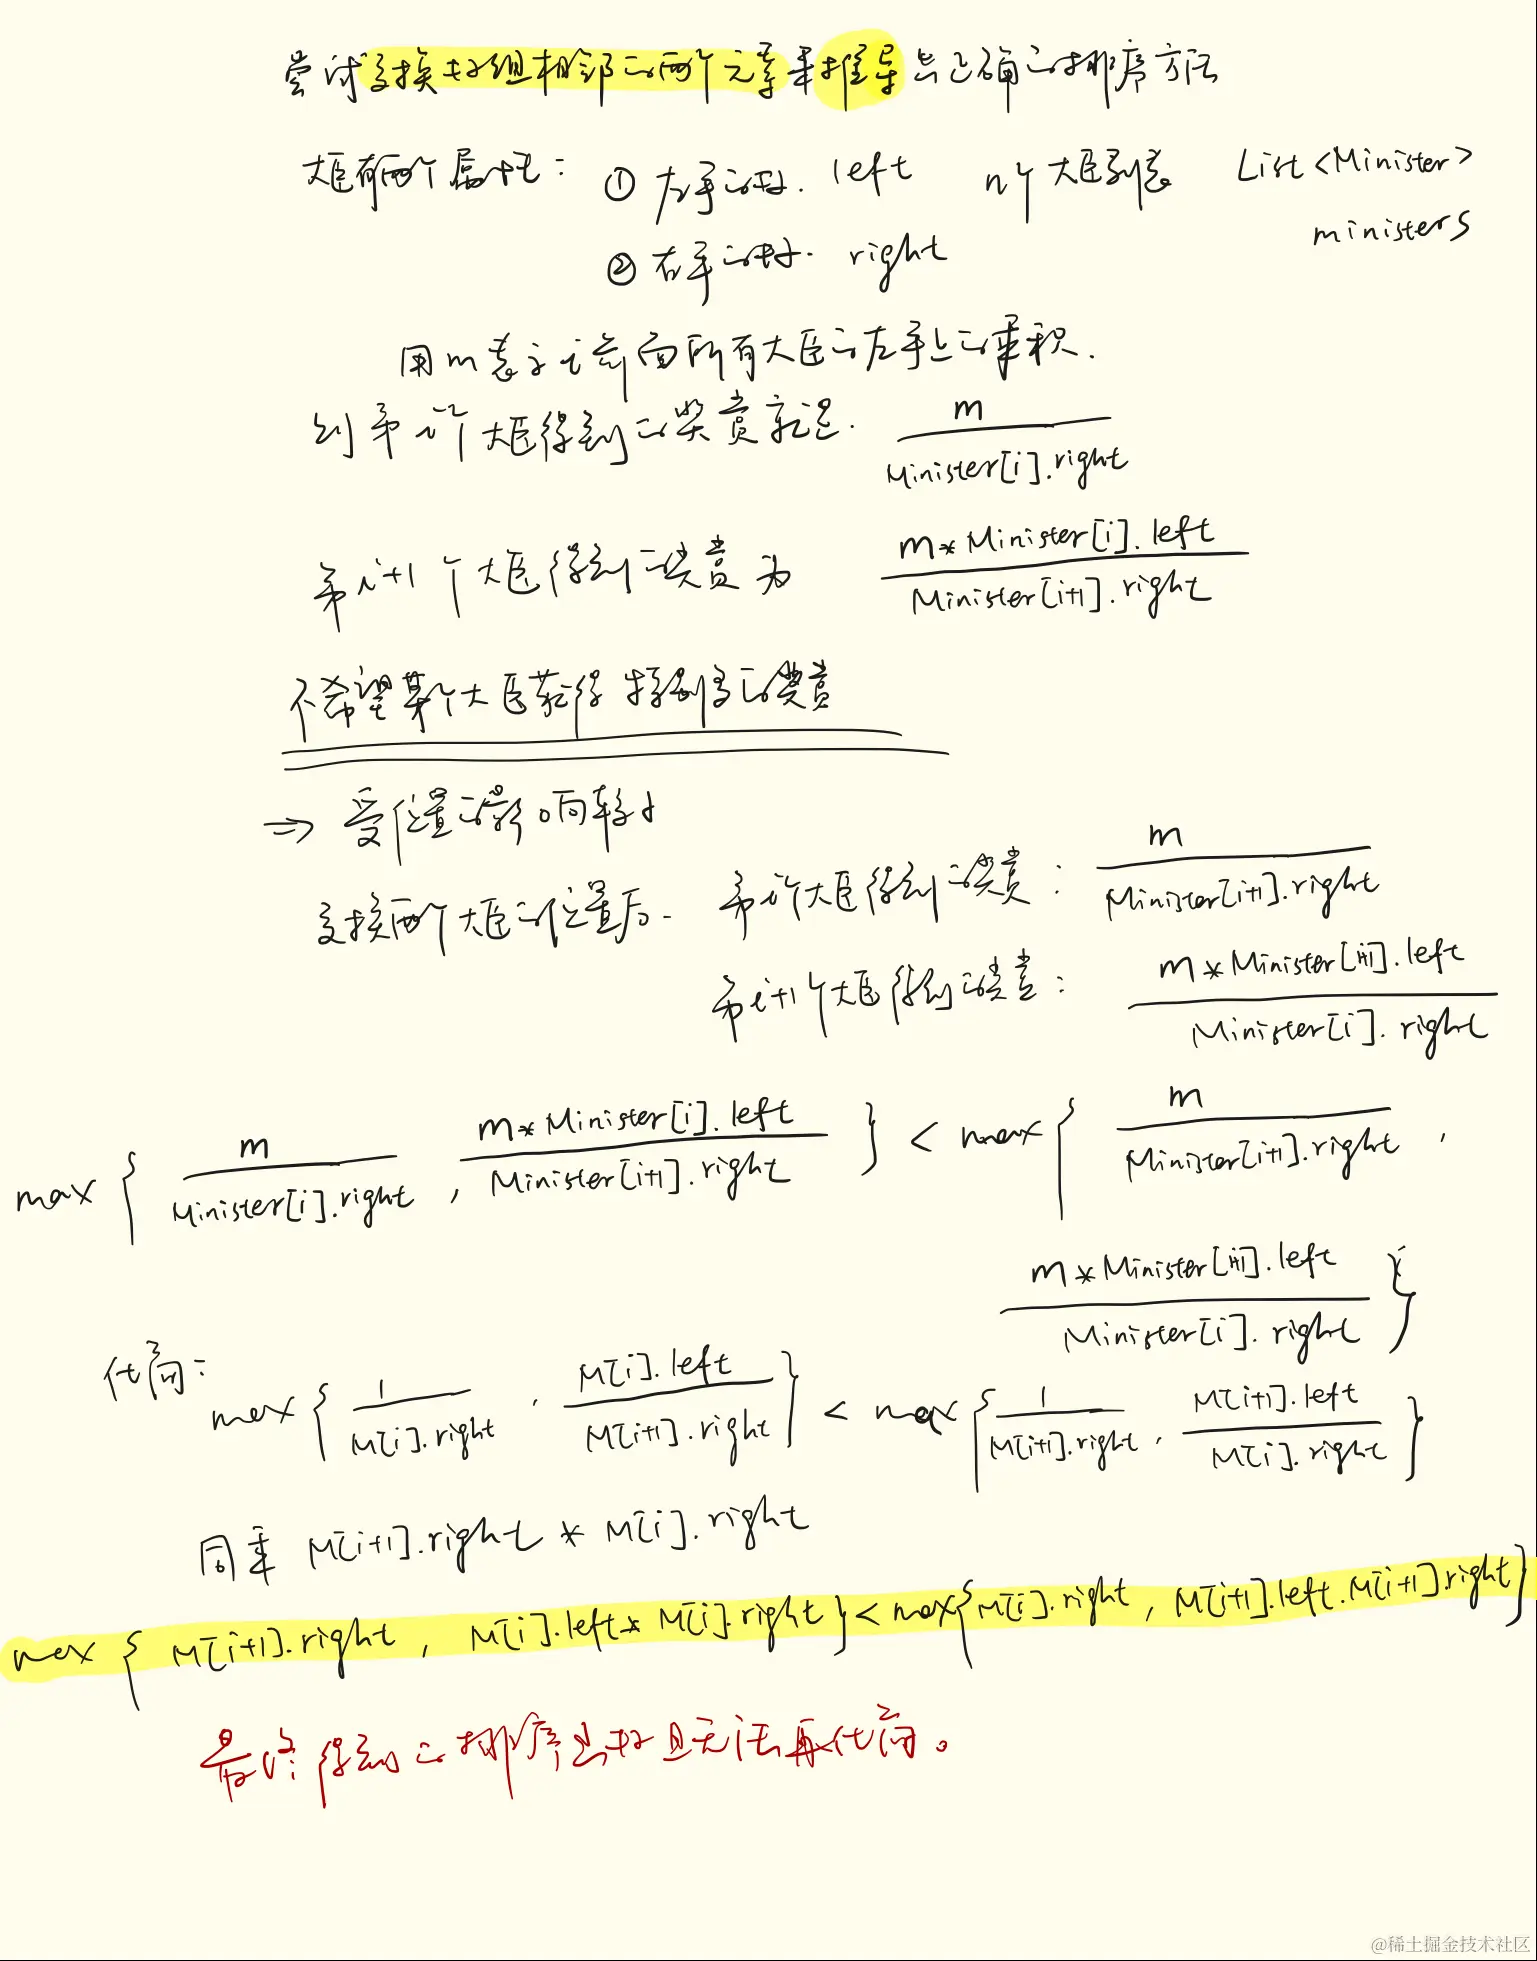 尝试交换数组相邻的两个元素来推导出正确的排序方法
大臣有两个属性: ① 左手的数. left n个大臣列表 List<Minister>
ministers
② 右手的数. right
用m表示i前面所有大臣的左手上的乘积.
则第i个大臣得到的奖赏就是. m / Minister[i].right
第i+1个大臣得到的奖赏为 m*Minister[i].left / Minister[i+1].right
不希望某个大臣获得特别多的奖赏
=> 受位置的影响较小
交换两个大臣的位置后. 第i个大臣得到的奖赏: m / Minister[i+1].right
第i+1个大臣得到的奖赏: m*Minister[i+1].left / Minister[i].right
max { m / Minister[i].right , m*Minister[i].left / Minister[i+1].right } < max { m / Minister[i+1].right ,
m*Minister[i+1].left / Minister[i].right }
化简: max { 1 / M[i].right , M[i].left / M[i+1].right } < max { 1 / M[i+1].right , M[i+1].left / M[i].right }
同乘 M[i+1].right * M[i].right
max { M[i+1].right , M[i].left * M[i].right } < max { M[i].right , M[i+1].left . M[i+1].right }
最终得到的排序函数且无法再化简。
@稀土掘金技术社区